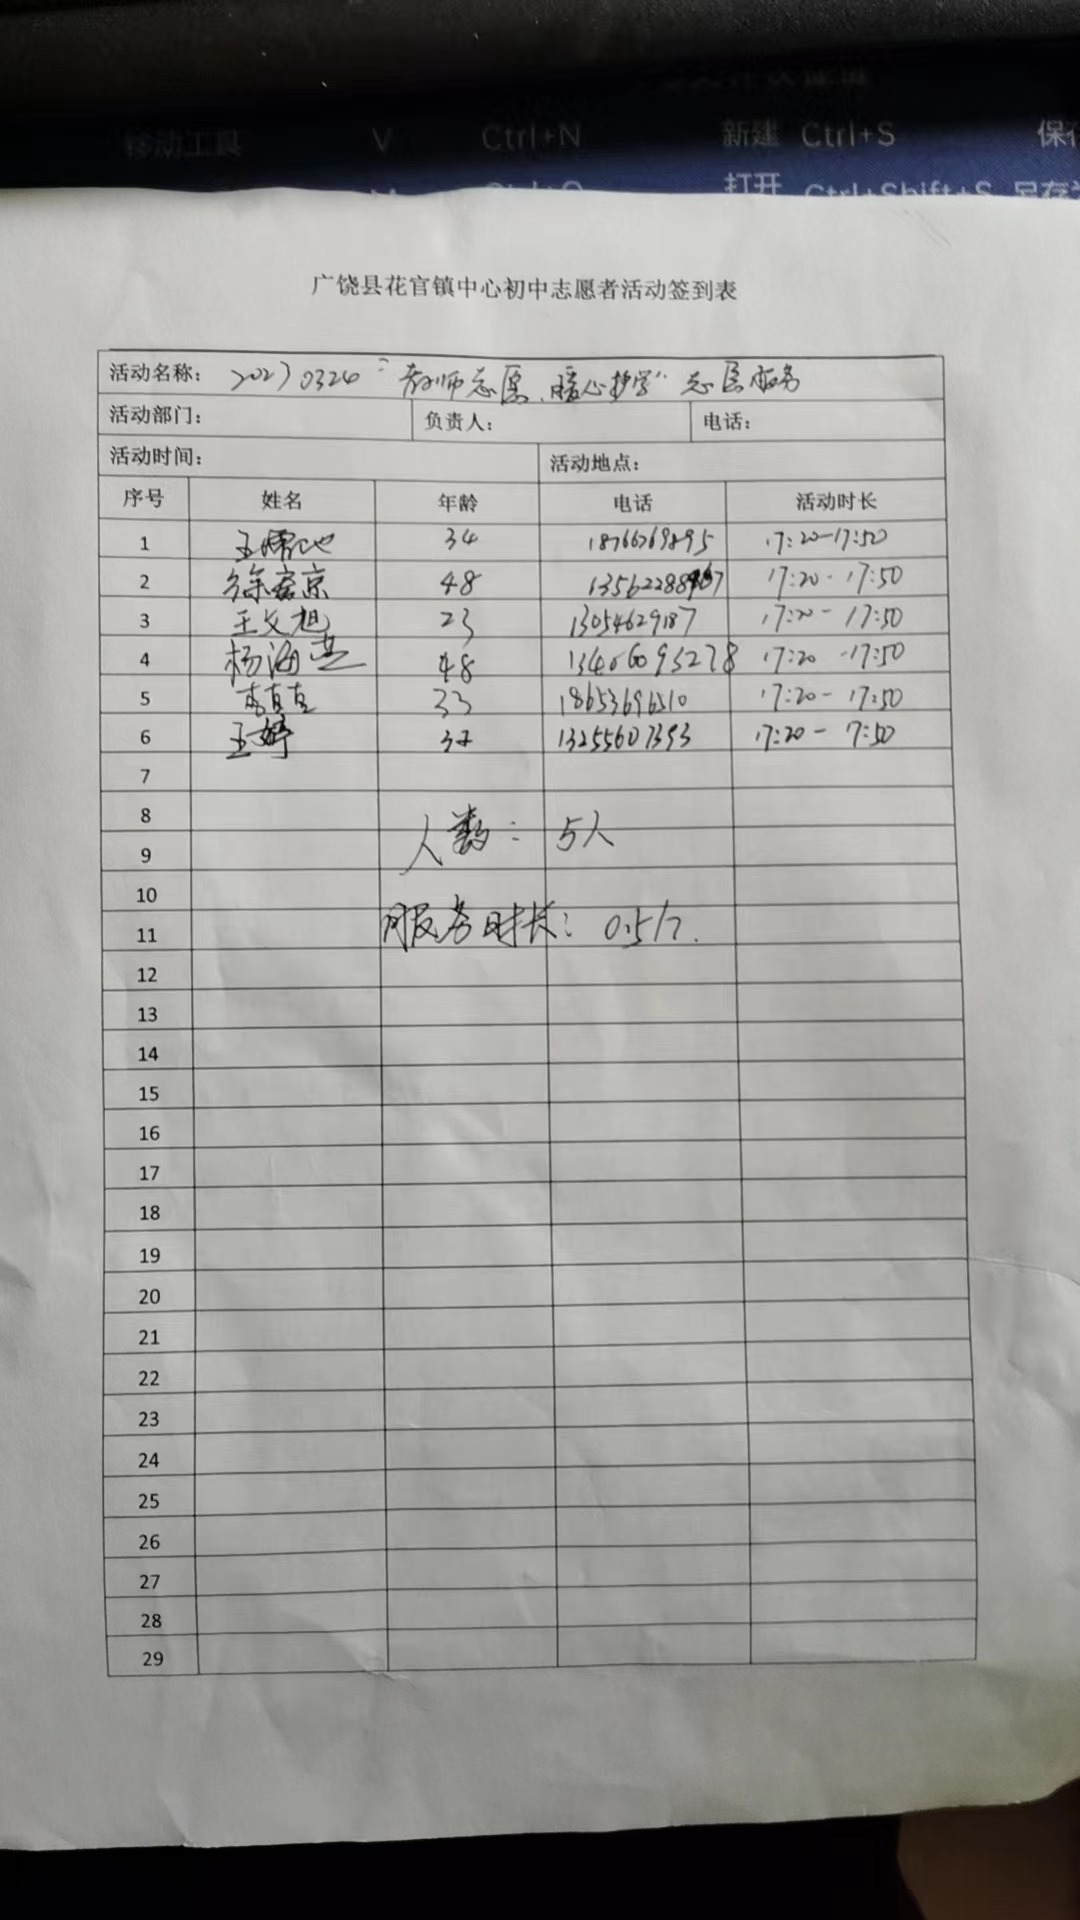 移动工具 V Ctrl+N 新建 Ctrl+S 保存
打开 Ctrl+Shift+S 另存为
广饶县花官镇中心初中志愿者活动签到表
活动名称: 20230324 "教师志愿、暖心护学" 志愿服务
活动部门: 负责人: 电话:
活动时间: 活动地点:
序号 姓名 年龄 电话 活动时长
1 34 18766769895 17:20-17:50
2 徐 京 48 17:20-17:50
3 王文旭 23 13054629187 17:20-17:50
4 杨海燕 48 13406093278 17:20-17:50
5 33 18653696510 17:20-17:50
6 王婷 13255607393 17:20-7:50
7
8
人数: 5人
9
10
服务时长: 0.5/h.
11
12
13
14
15
16
17
18
19
20
21
22
23
24
25
26
27
28
29